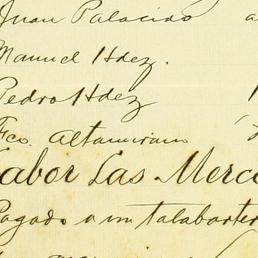 Juan Palacido a
Manuel Hdez.
Pedro Hdez
Fco. Altamirano
Labor Las Merce
Pagado a un talabarter